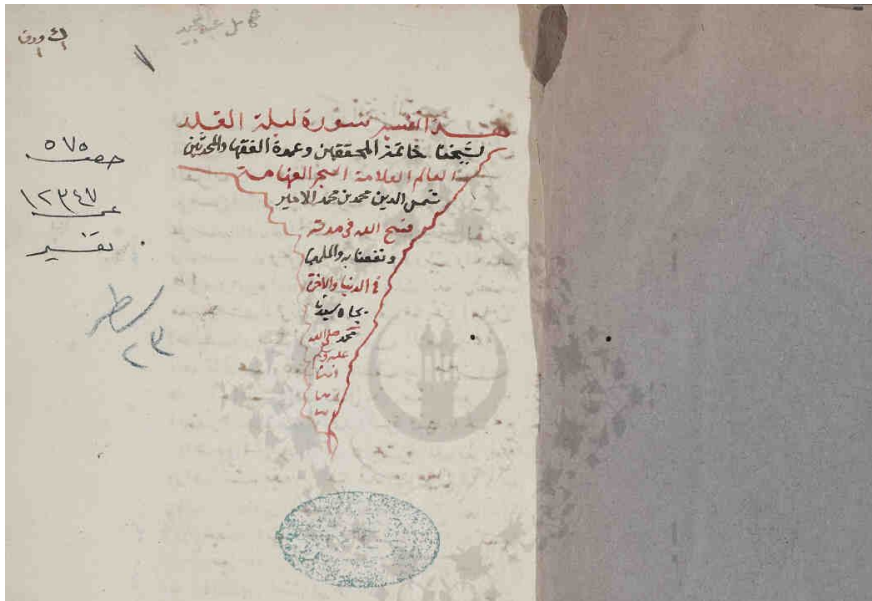 هذا تفسير سورة ليلة القدر
لشيخنا خاتمة المحققين وعمدة الفقها والمحدثين
العالم العلامة البحر الفهامة
شمس الدين محمد بن محمد الامير
فسح الله في مدته
ونفعنا به والمسلمين
في الدنيا والاخرة
بجاه سيدنا
محمد صلى الله
عليه وسلم
امين
٥٧٥
١٢٣٤٧
تفسير
سطر
٢٣